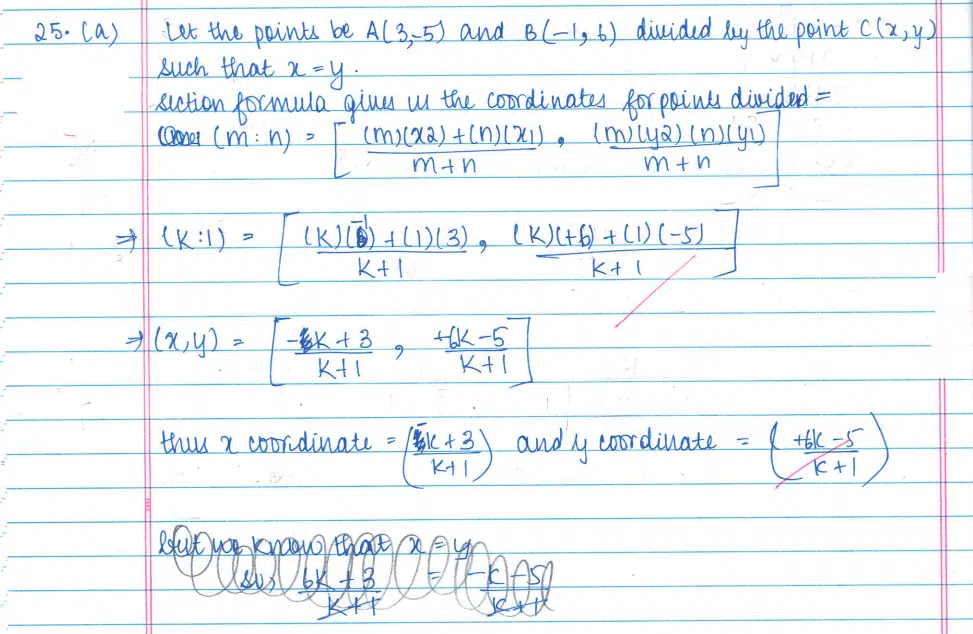 25. (a) Let the points be A(3,-5) and B(-1, 6) divided by the point C(x,y)
such that x = y.
section formula gives us the coordinates for points divided =
(m:n) = [ (m)(x2)+(n)(x1) / m+n , (m)(y2)(n)(y1) / m+n ]
⇒ (K:1) = [ (K)(-1)+(1)(3) / K+1 , (K)(+6)+(1)(-5) / K+1 ]
⇒ (x,y) = [ -K+3 / K+1 , +6K-5 / K+1 ]
thus x coordinate = ( -K+3 / K+1 ) and y coordinate = ( +6K-5 / K+1 )
but we know that x = y
so, 6K+3 / K+1 = -K-5 / K+1